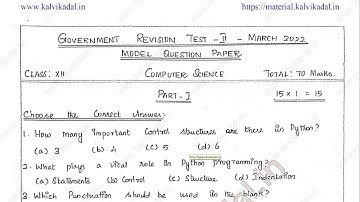 www.kalvikadal.in https://material.kalvikadal.in
GOVERNMENT REVISION TEST - II - MARCH 2022
MODEL QUESTION PAPER
CLASS: XII COMPUTER SCIENCE TOTAL: 70 Marks.
PART-I 15 x 1 = 15
Choose the Correct Answer:
1. How many important Control structures are there in Python?
(a) 3 (b) 4 (c) 5 (d) 6
2. What plays a vital role in Python programming?
(a) Statements (b) Control (c) Structure (d) Indentation
3. Which Punctuation should be used in the blank?